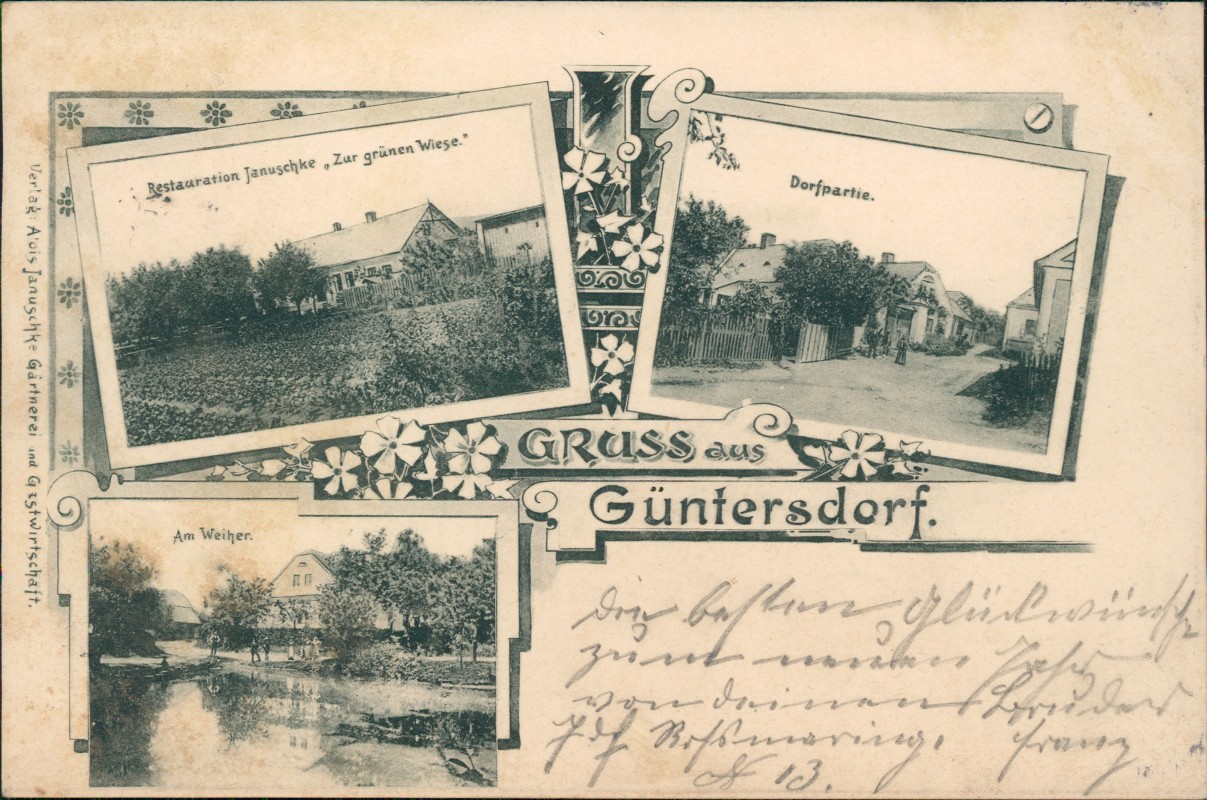 Restauration Januschke „Zur grünen Wiese."
Dorfpartie.
Verlag: Alois Januschke Gärtnerei und Gastwirtschaft.
GRUSS aus
Güntersdorf.
Am Weiher.
die besten Glückwünsche
zum neuen Jahr
von deinen Bruder
Franz
N 13.